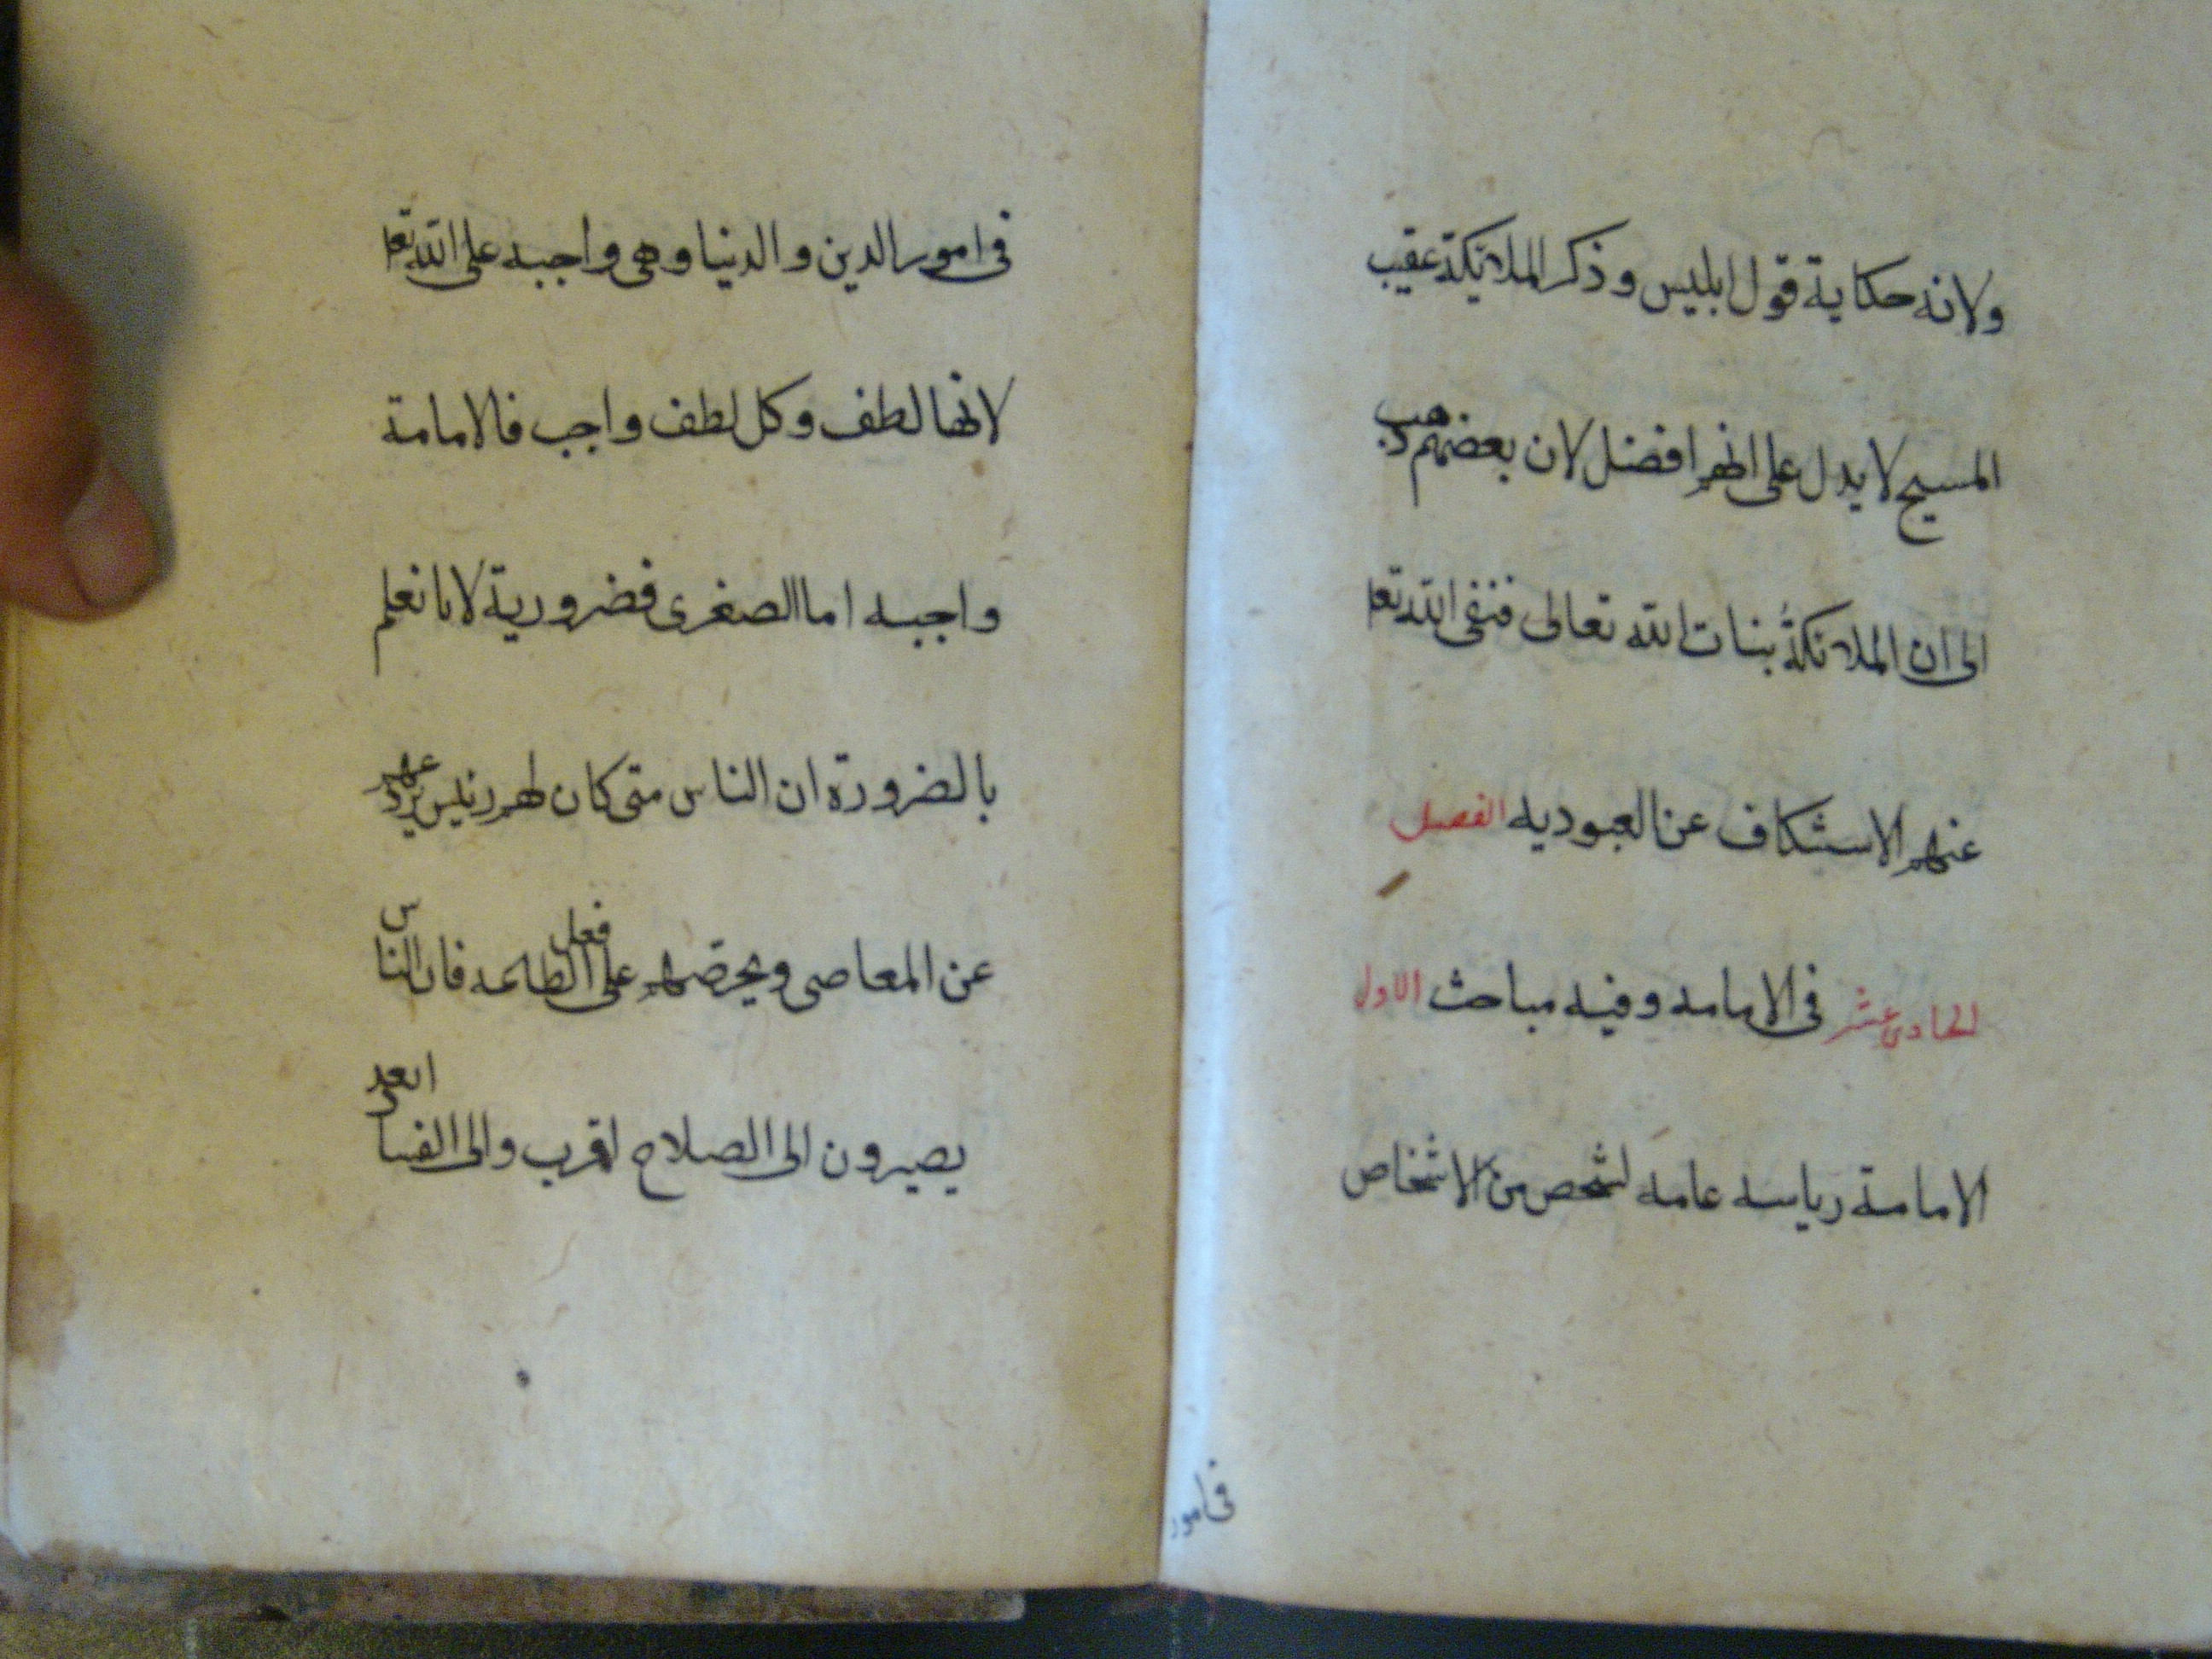 ولانه حكاية قول ابليس وذكر الملائكة عقيب
المسيح لا يدل على انهم افضل لان بعضهم ذهب
الى ان الملائكة بنات الله تعالى فنفى الله تعا
عنهم الاستنكاف عن العبوديه الفصل
الحادى عشر فى الامامه وفيه مباحث الاول
الامامة رياسه عامه لشخص من الاشخاص
فى امور
فى امور الدين والدنيا وهى واجبه على الله تعا
لانها لطف وكل لطف واجب فالامامة
واجبه اما الصغرى فضرورية لانا نعلم
بالضرورة ان الناس متى كان لهم رئيس يردعهم
عن المعاصى ويحرضهم على فعل الطاعه فان الناس
يصيرون الى الصلاح اقرب والى الفسا ابعد